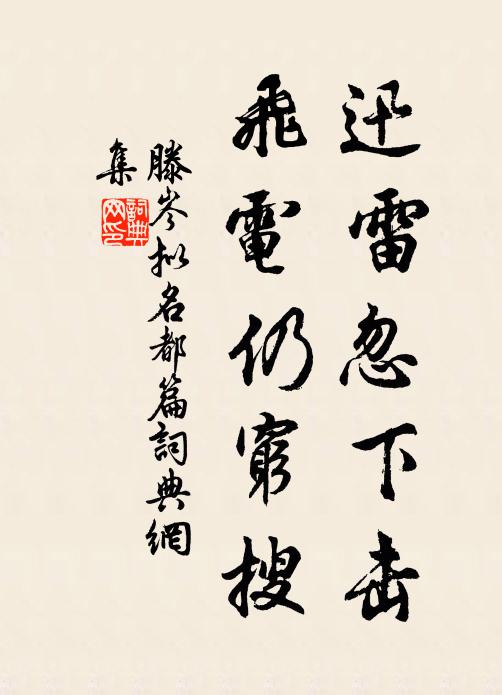 迅雷忽下击
飛電仍窮搜
滕岑拟名都篇詞典網
集
詞典网印